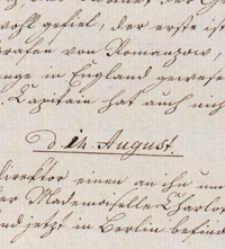 wohl gefiel, der erste ist
grafen von Romanzow,
lange in England gewese
. Capitain hat auch nich
d. 14. August.
direktor einen an ihn um
der Mademoiselle Charlot
und jetzt in Berlin befind